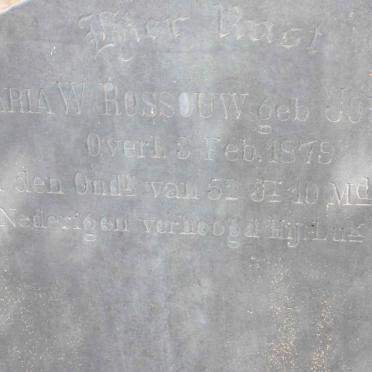 Hier Rust
ARIA W. ROSSOUW geb JO
Overl. 3 Feb. 1879
den Oudᵐ van 52 Jʳ 10 Mᵈ
Nederigen verhoogd Hij. Luk